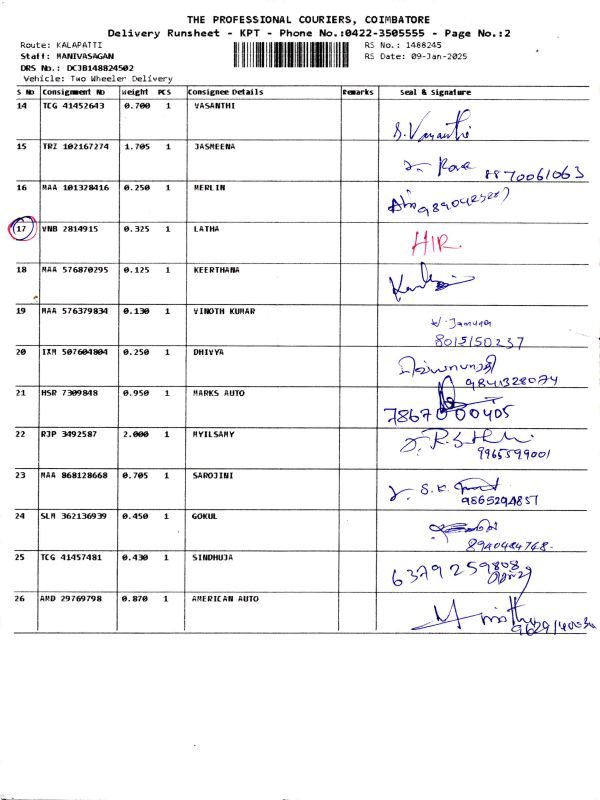 THE PROFESSIONAL COURIERS, COIMBATORE
Delivery Runsheet - KPT - Phone No.:0422-3505555 - Page No.:2
Route: KALAPATTI RS No.: 1488245
Staff: MANIVASAGAN RS Date: 09-Jan-2025
DRS No.: DCJB148824502
Vehicle: Two Wheeler Delivery
S No Consignment No Weight PCS Consignee Details Remarks Seal & Signature
14 TCG 41452643 0.700 1 VASANTHI
S. Vasanthi
15 TRZ 102167274 1.705 1 JASMEENA
8870061063
16 MAA 101328416 0.250 1 MERLIN
17 VNB 2814915 0.325 1 LATHA
HIR
18 MAA 576870295 0.125 1 KEERTHANA
19 MAA 576379834 0.130 1 VINOTH KUMAR
Jamuna
8015150237
20 IXM 507604804 0.250 1 DHIVYA
9841328074
21 HSR 7309848 0.950 1 MARKS AUTO
7867000405
22 RJP 3492587 2.000 1 MYILSAMY
9965599001
23 MAA 868128668 0.705 1 SAROJINI
9865294851
24 SLM 362136939 0.450 1 GOKUL
8940484748
25 TCG 41457481 0.430 1 SINDHUJA
6379259808
26 AMD 29769798 0.870 1 AMERICAN AUTO